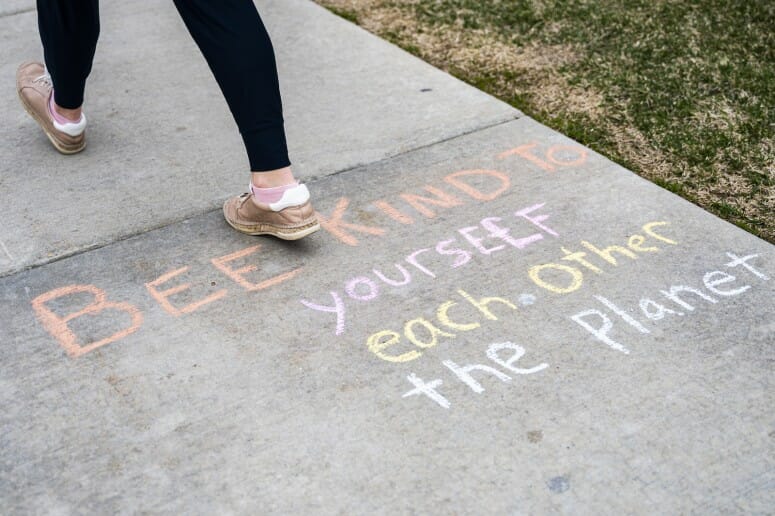 BEE KIND TO
YOURSELF
each Other
the Planet